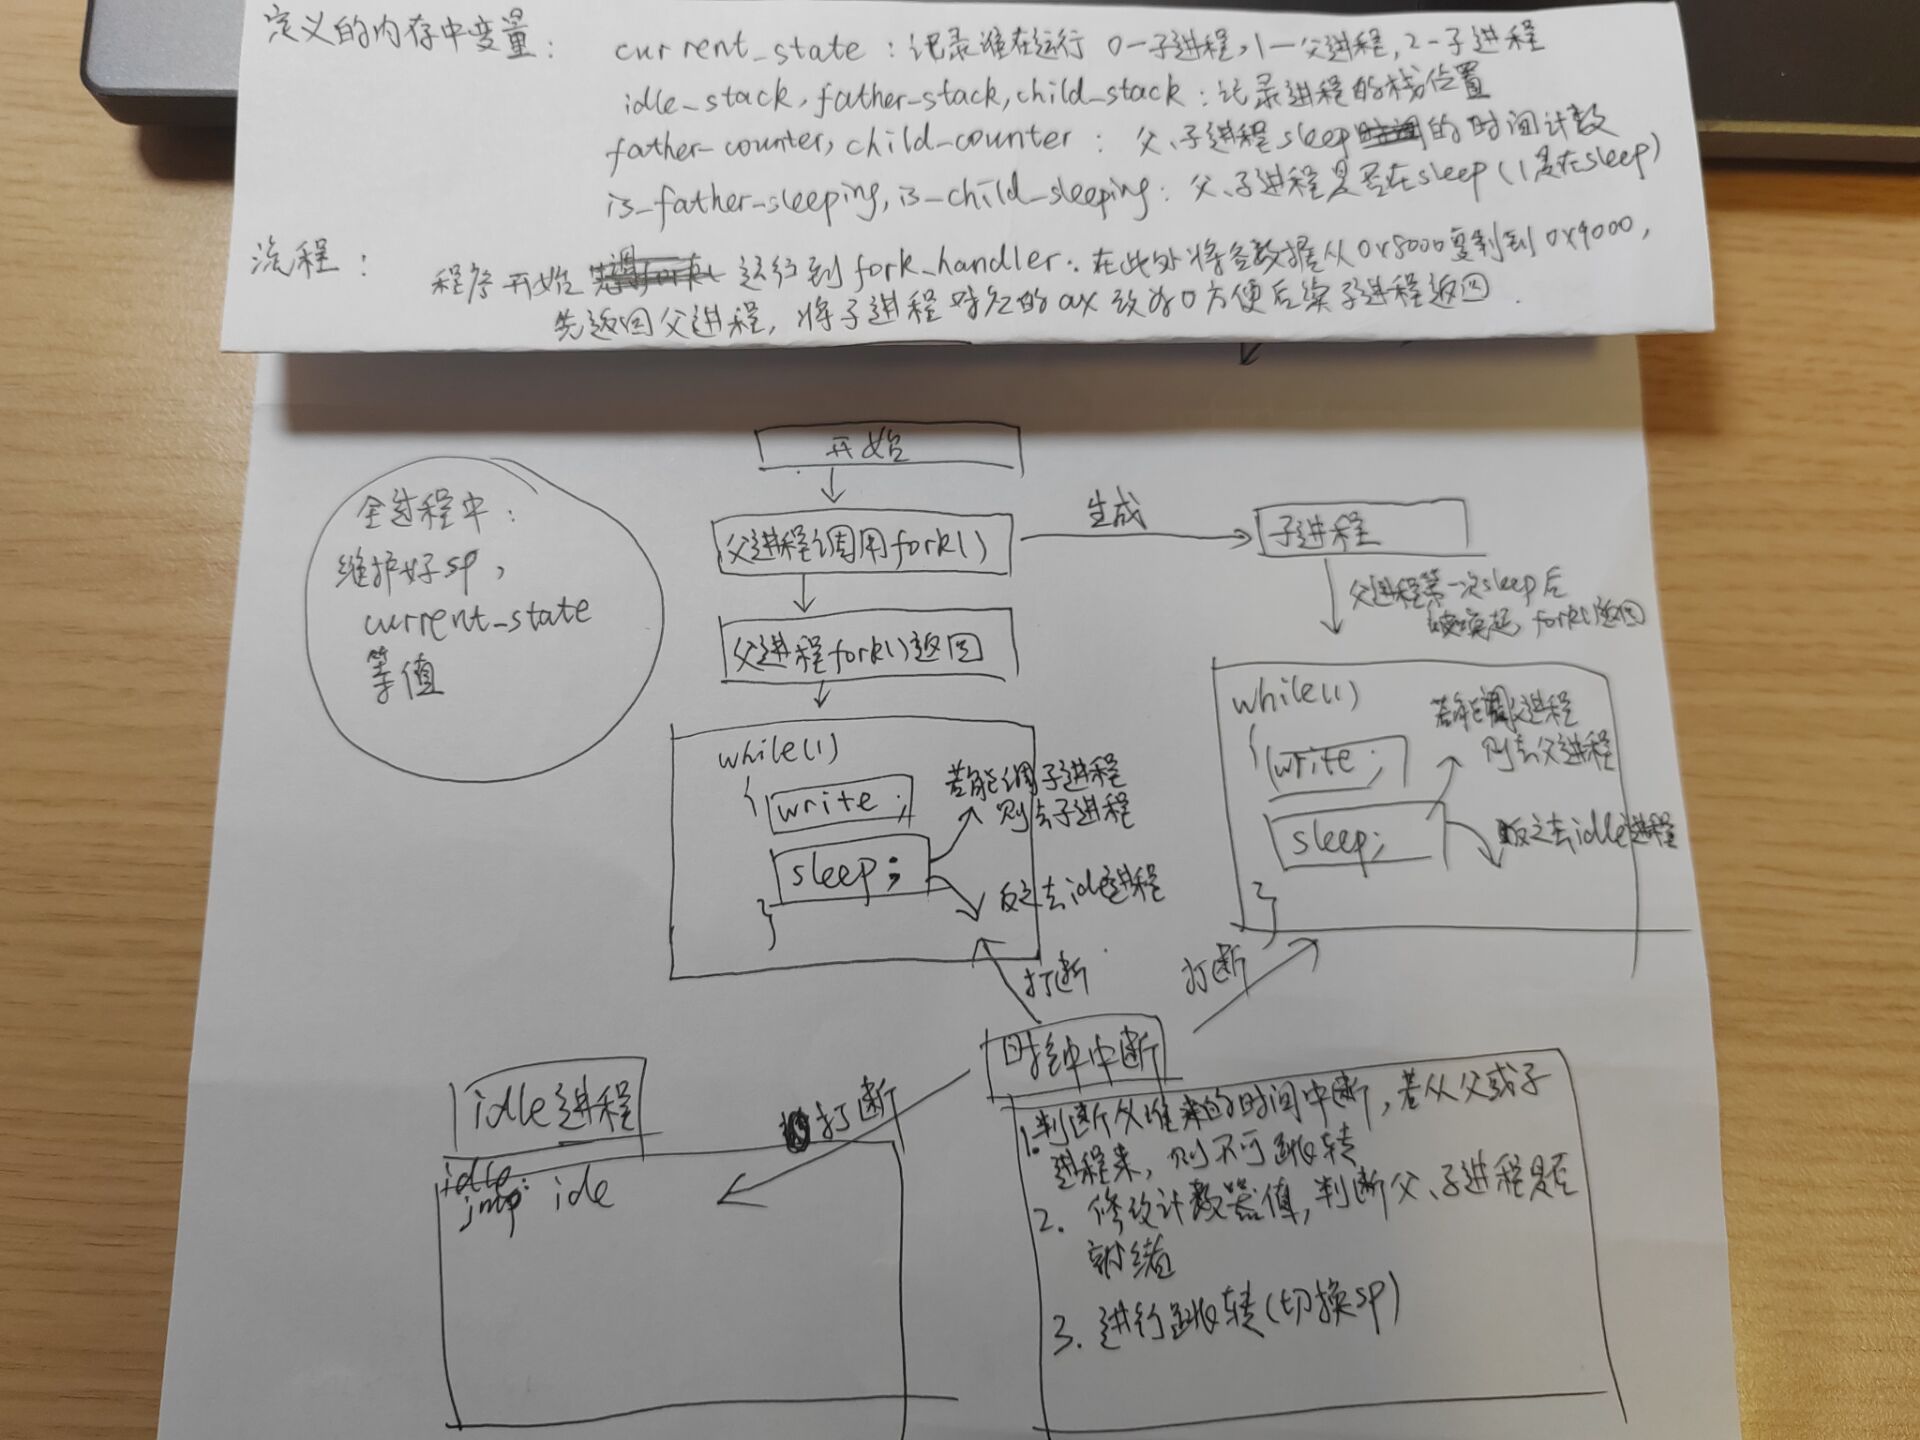 定义的内存中变量:
current_state:记录谁在运行 0-子进程,1-父进程,2-子进程
idle_stack,father-stack,child_stack:记录进程的栈位置
father-counter,child-counter: 父、子进程sleep的时间计数
is-father-sleeping,is-child_sleeping:父、子进程是否在sleep(1是在sleep)
流程:
程序开始 运行到fork_handler:在此处将各数据从0x8000复制到0x9000,
先返回父进程,将子进程的ax改为0方便后续子进程返回.
开始
全过程中:
维护好sp,
current_state
等值
父进程调用fork()
生成
子进程
父进程第一次sleep后
被唤起 fork()返回
父进程fork()返回
while(1)
{write;
sleep;
}
若能调子进程
则去子进程
反之去idle进程
while(1)
{write;
sleep;
}
若能调父进程
则去父进程
反之去idle进程
打断
打断
时钟中断
打断
idle进程
idle:
jmp ide
1.判断从谁来的时间中断,若从父或子
进程来,则不可跳转
2.修改计数器值,判断父、子进程是否
就绪
3.进行跳转(切换sp)